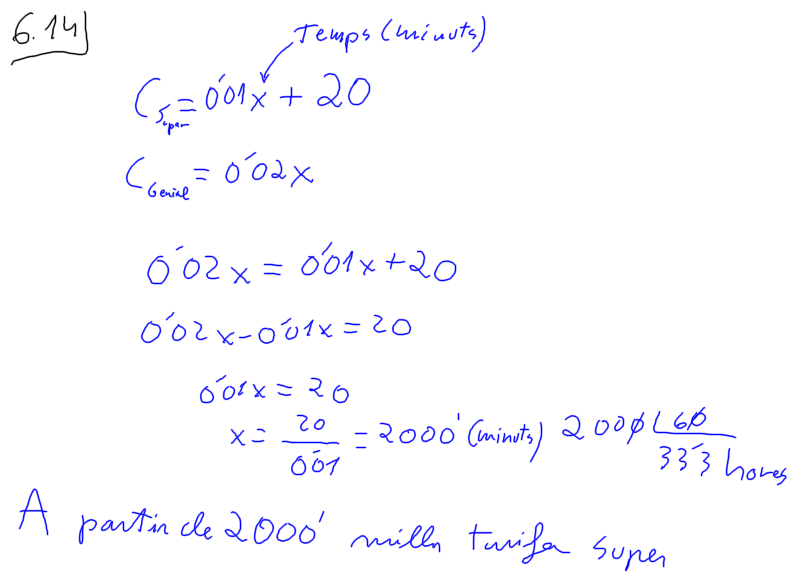 6.14
Temps (minuts)
C Super = 0'01x + 20
C Genial = 0'02x
0'02x = 0'01x + 20
0'02x - 0'01x = 20
0'01x = 20
x = 20/0'01 = 2000' (minuts) 2000 | 60
33'3 hores
A partir de 2000' millor tarifa super